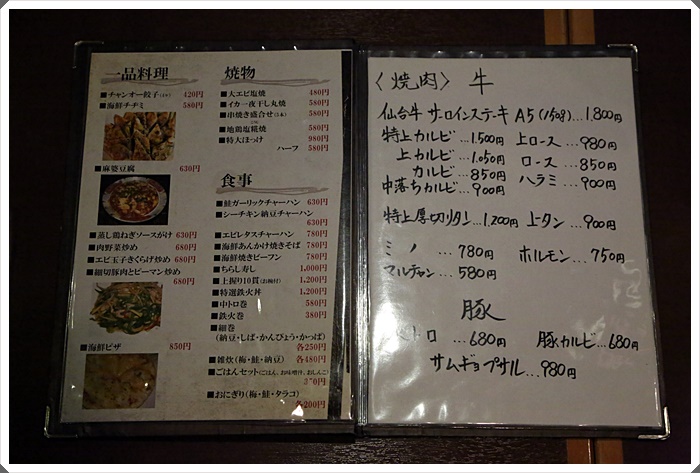 一品料理
■チャンオー餃子(5ヶ) 420円
■海鮮チヂミ 580円
■麻婆豆腐 630円
■蒸し鶏ねぎソースがけ 630円
■肉野菜炒め 680円
■エビ玉子きくらげ炒め 680円
■細切豚肉とピーマン炒め
680円
■海鮮ピザ 850円
焼物
■大エビ塩焼 480円
■イカ一夜干し丸焼 580円
■串焼き盛合せ(5本) 580円
■地鶏塩糀焼 580円
■特大ほっけ 980円
ハーフ 580円
食事
■鮭ガーリックチャーハン
630円
■シーチキン納豆チャーハン
630円
■エビレタスチャーハン 780円
■海鮮あんかけ焼きそば 780円
■海鮮焼きビーフン 780円
■ちらし寿し 1,000円
■上握り10貫(お椀付) 1,200円
■特選鉄火丼 1,200円
■中トロ巻 580円
■鉄火巻 380円
■細巻
(納豆・しば・かんぴょう・かっぱ)
各250円
■雑炊(梅・鮭・納豆) 各480円
■ごはんセット(ごはん、お味噌汁、おしんこ)
370円
■おにぎり(梅・鮭・タラコ)
各200円
〈焼肉〉 牛
仙台牛 サーロインステーキ A5(150g)…1,800円
特上カルビ…1,500円 上ロース…980円
上カルビ…1,050円 ロース…850円
カルビ…850円 ハラミ…900円
中落ちカルビ…900円
特上厚切りタン…1,200円 上タン…900円
ミノ…780円 ホルモン…750円
マルチャン…580円
豚
トロ…680円 豚カルビ…680円
サムギョプサル…980円